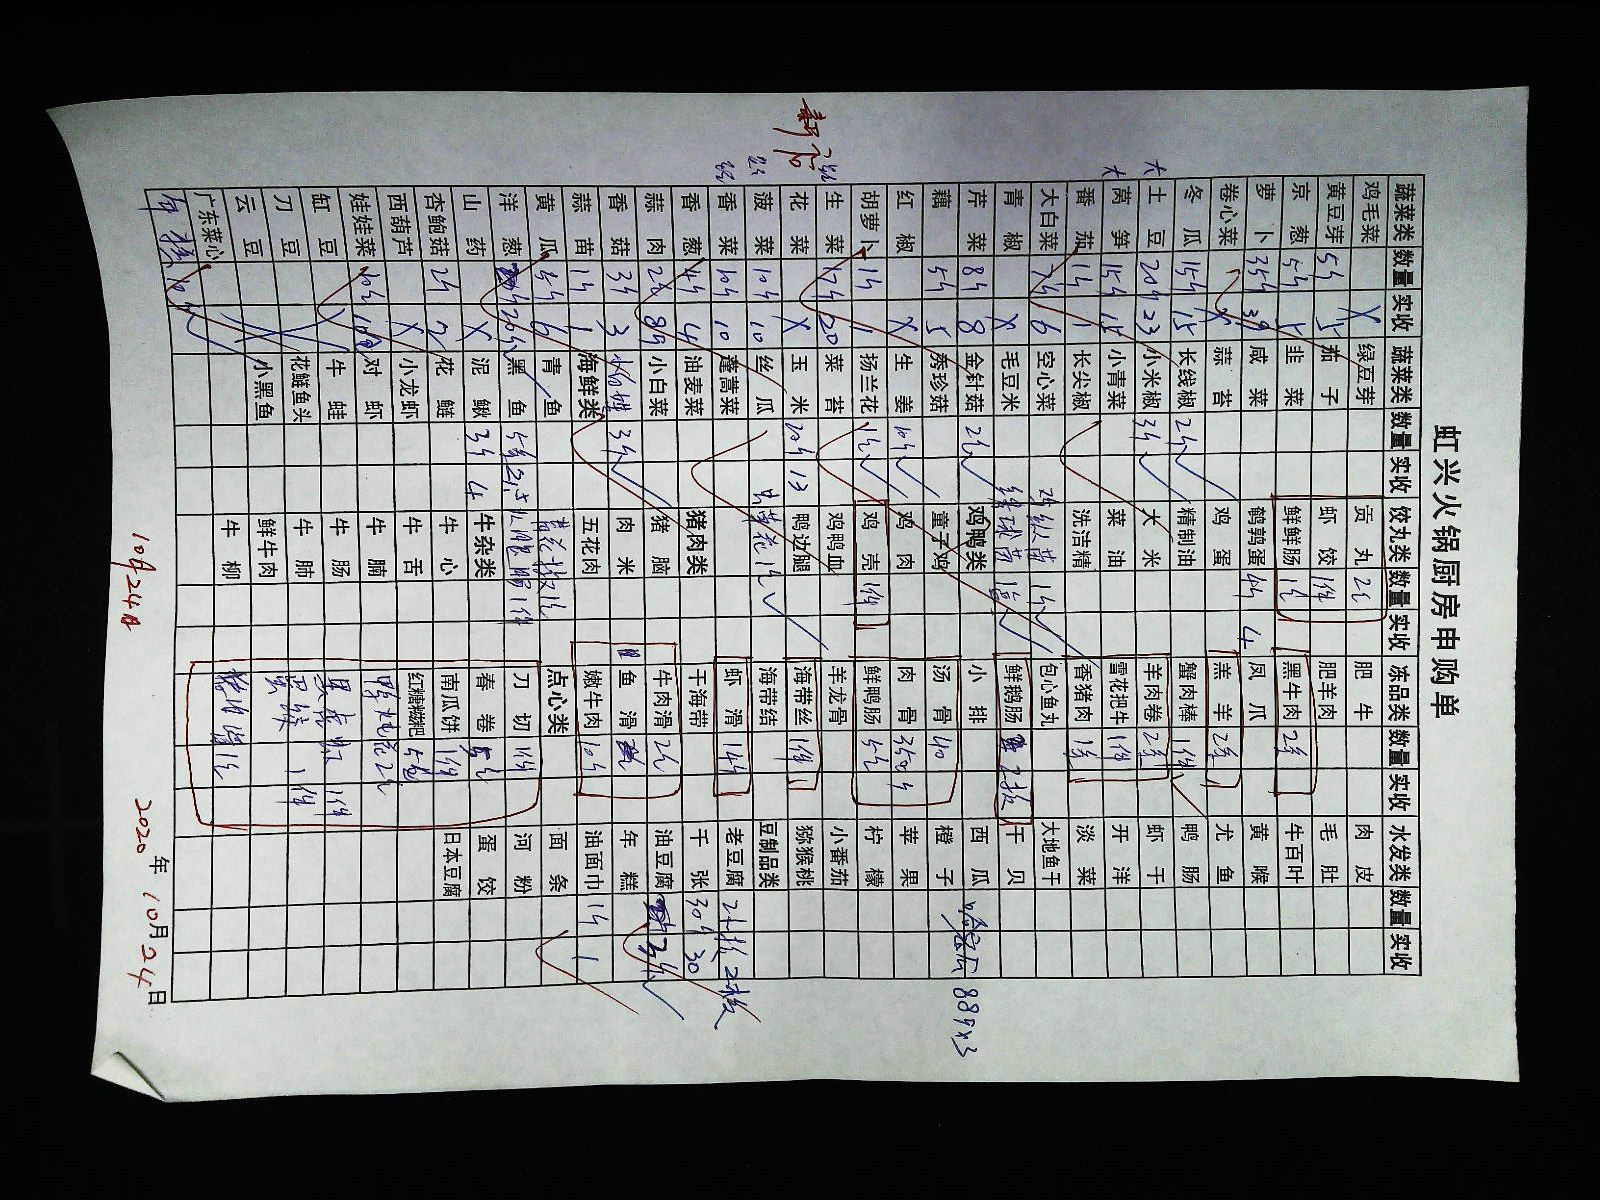 虹兴火锅厨房申购单
蔬菜类 数量 实收 蔬菜类 数量 实收 饺丸类 数量 实收 冻品类 数量 实收 水发类 数量 实收
鸡毛菜 X 绿豆芽 贡丸 2包 肥牛 肉皮
黄豆芽 5斤 5 茄子 虾饺 1件 肥羊肉 毛肚
京葱 5斤 5 韭菜 鲜鲜肠 1包 黑牛肉 2条 牛百叶
萝卜 35斤 39 咸菜 鹌鹑蛋 4斤 4 凤爪 黄喉
卷心菜 X 蒜苔 鸡蛋 羔羊 2条 尤鱼
冬瓜 15斤 15 长线椒 2斤 精制油 蟹肉棒 1件 鸭肠
大 土豆 20斤 23 小米椒 3斤 大米 羊肉卷 2条 虾干
大 莴笋 15斤 15 小青菜 菜油 雪花把牛 1件 开洋
番茄 1斤 1 长尖椒 洗洁精 香猪肉 1条 淡菜
大白菜 7斤 6 空心菜 鸡枞菌 1斤 包心鱼丸 大地鱼干
青椒 X 毛豆米 绣球菌 鲜鹅肠 2板 干贝
芹菜 8斤 8 金针菇 2斤 鸡鸭类 小排 西瓜 哈密瓜 889x3
藕 5斤 5 秀珍菇 童子鸡 汤骨 40 橙子
红椒 X 生姜 10斤 鸡肉 肉骨 苹果
胡萝卜 1斤 1 扬兰花 1斤 鸡壳 1件 鲜鸭肠 5斤 柠檬
生菜 17斤 20 菜苔 鸡鸭血 羊龙骨 小番茄
花菜 X 玉米 20斤 13 鸭边腿 海带丝 1件 猕猴桃
菠菜 10斤 10 丝瓜 海带结 豆制品类
香菜 10斤 10 蓬蒿菜 虾滑 14斤 老豆腐 2板 2板
香葱 4斤 4 油麦菜 猪肉类 干海带 千张 30斤 30
蒜肉 2斤 小白菜 猪脑 牛肉滑 2斤 油豆腐 3斤
香菇 3斤 3 3斤 肉米 鱼滑 年糕
蒜苗 1斤 1 海鲜类 五花肉 嫩牛肉 10斤 油面巾 1斤 1
黄瓜 5斤 6 青鱼 点心类 面条
洋葱 20斤 黑鱼 刀切 1件 河粉
山药 X 泥鳅 3斤 4 牛杂类 春卷 蛋饺
杏鲍菇 2斤 2 花鲢 牛心 南瓜饼 1件 日本豆腐
西葫芦 X 小龙虾 牛舌 红糖糍粑
娃娃菜 10斤 10 对虾 牛腩
缸豆 牛蛙 牛肠
刀豆 花鲢鱼头 牛肺
云豆 小黑鱼 鲜牛肉
广东菜心 牛柳
10月24日 2020年10月24日